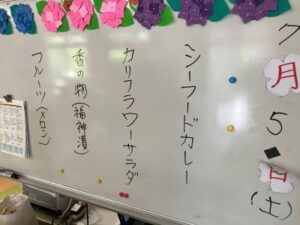 7月5日(土)
シーフードカレー
カリフラワーサラダ
香の物(福神漬)
フルーツ(メロン)